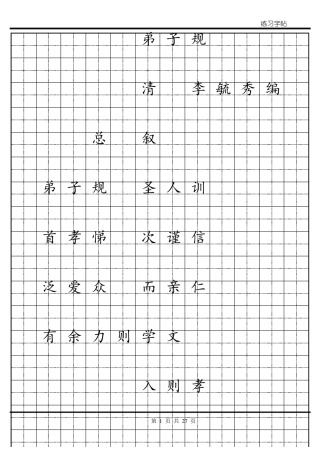 练习字帖
弟子规
清 李毓秀编
总 叙
弟子规 圣人训
首孝悌 次谨信
泛爱众 而亲仁
有余力则学文
入则孝
第 1 页 共 27 页